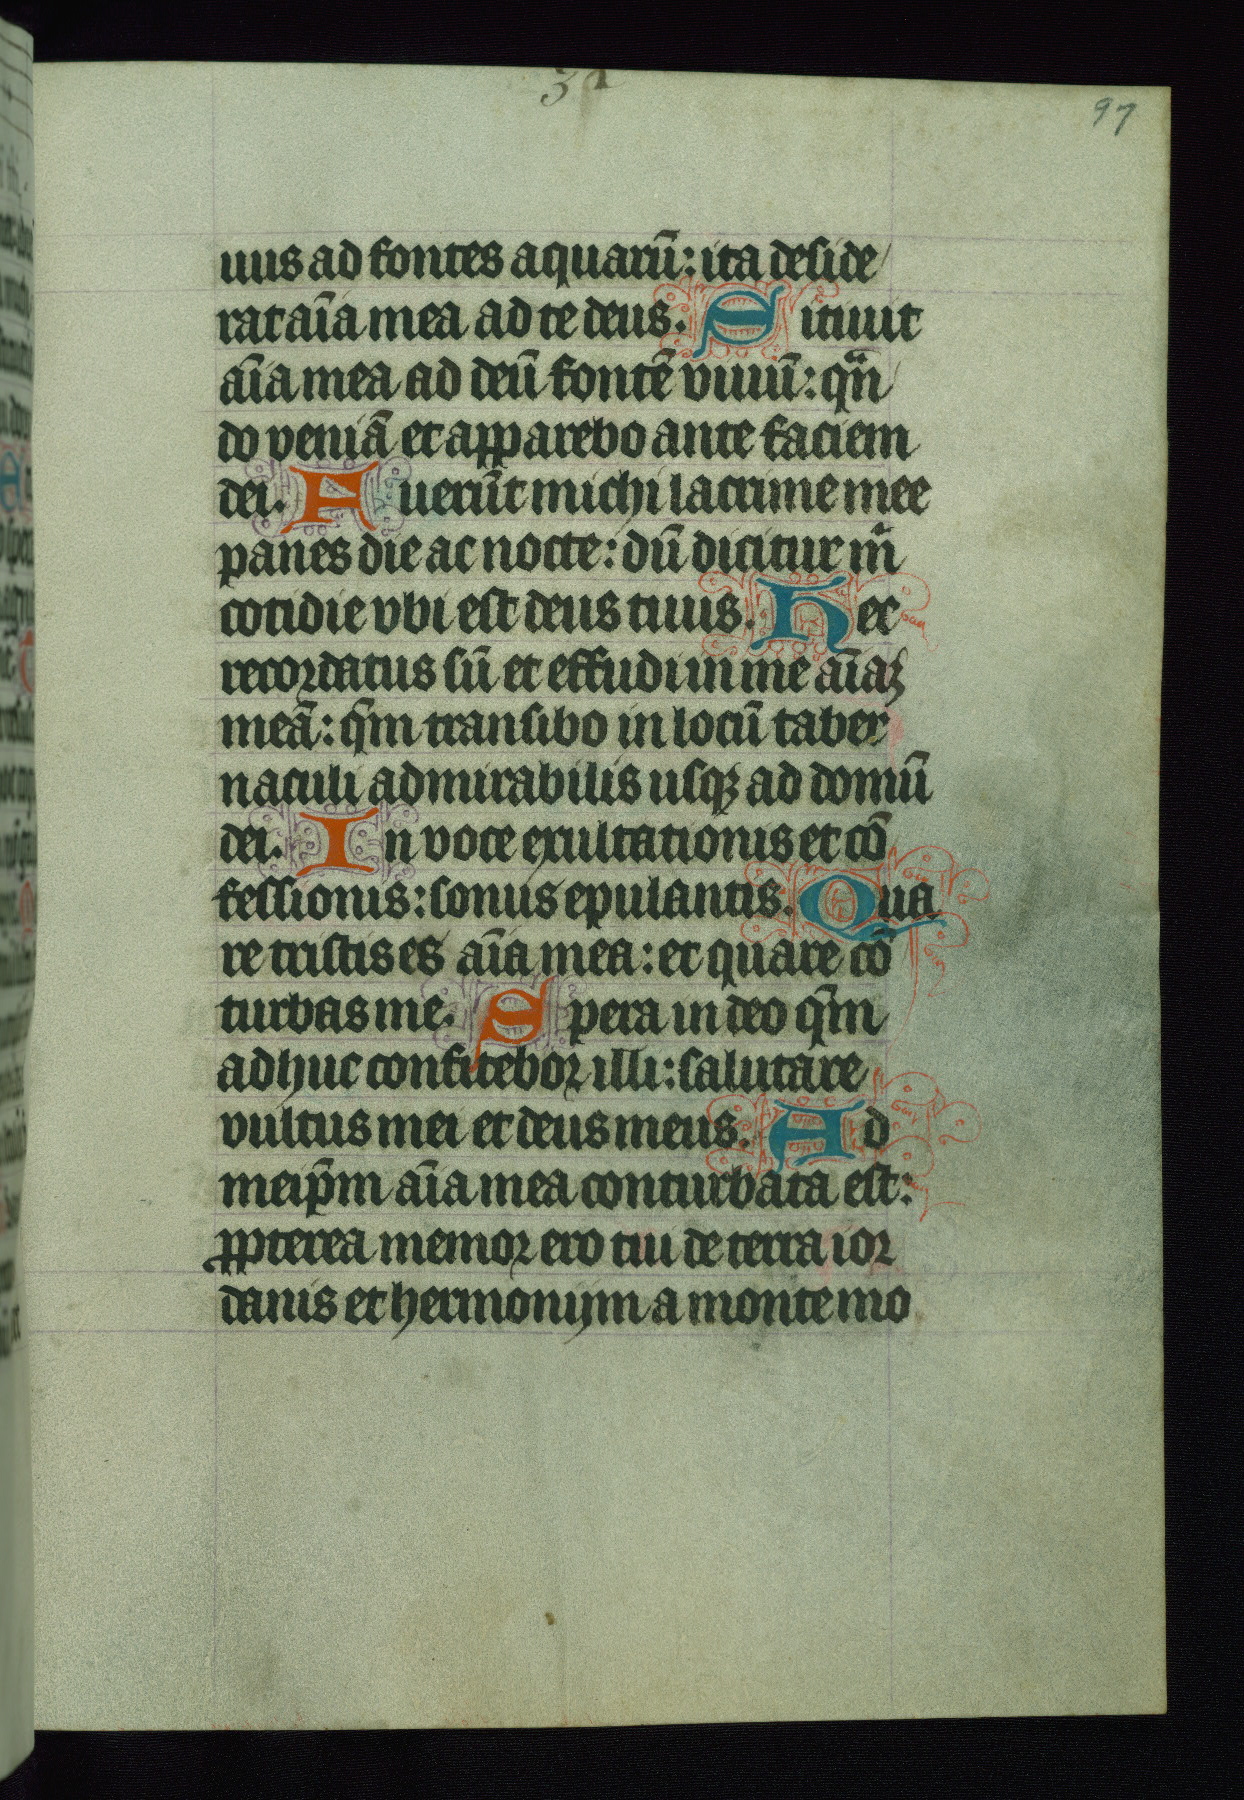 97
uus ad fontes aquarū: ita deside
rat aīa mea ad te deus. Sitiuit
aīa mea ad deū fontē viuū: qñ
do veniā et apparebo ante faciem
dei. Fuerūt michi lacrime mee
panes die ac nocte: dū dicitur m̄
cotidie vbi est deus tuus. Hec
recordatus sū et effudi in me aīaꝫ
meā: qm̄ transibo in locū taber
naculi admirabilis usqꝫ ad domū
dei. In voce exultationis et cō
fessionis: sonus epulantis. Qua
re tristis es aīa mea: et quare cō
turbas me. Spera in deo qm̄
adhuc confitebor illi: salutare
vultus mei et deus meus. Ad
meip̄m aīa mea conturbata est:
ꝓpterea memor ero tui de terra ior
danis et hermonijm a monte mo